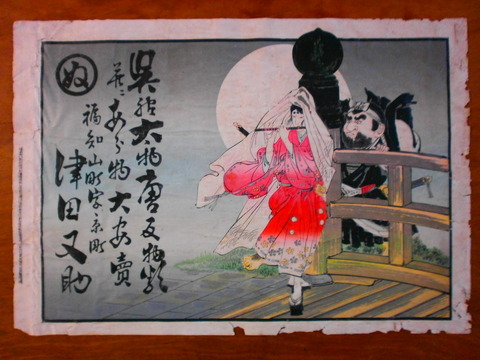 呉服太物唐反物類
并ニあら物大安賣
福知山町字京町
津田又助
奴